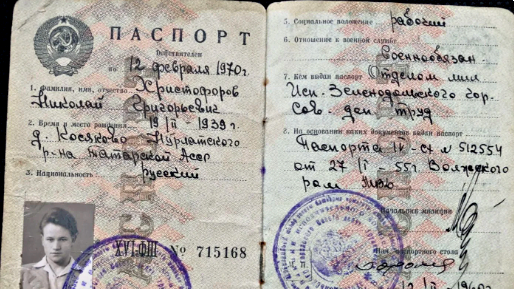 ПАСПОРТ
Действителен
по 12 февраля 1970г.
1. Фамилия, имя, отчество Христофоров
Николай Григорьевич
2. Время и место рождения 19/II - 1939г
д. Косяково Нурлатского
р-на Татарской Асср
3. Национальность русский
XVI-ФШ № 715168
5. Социальное положение рабочий
6. Отношение к военной службе
Военнообязан.
7. Кем выдан паспорт Отделом мил
Исп. Зеленодольского гор.
сов. деп. труд
8. На основании каких документов выдан паспорт
Паспорта IV-
№ 512554
от 27
55г. Волжского
Начальник милиции
паспортного стола